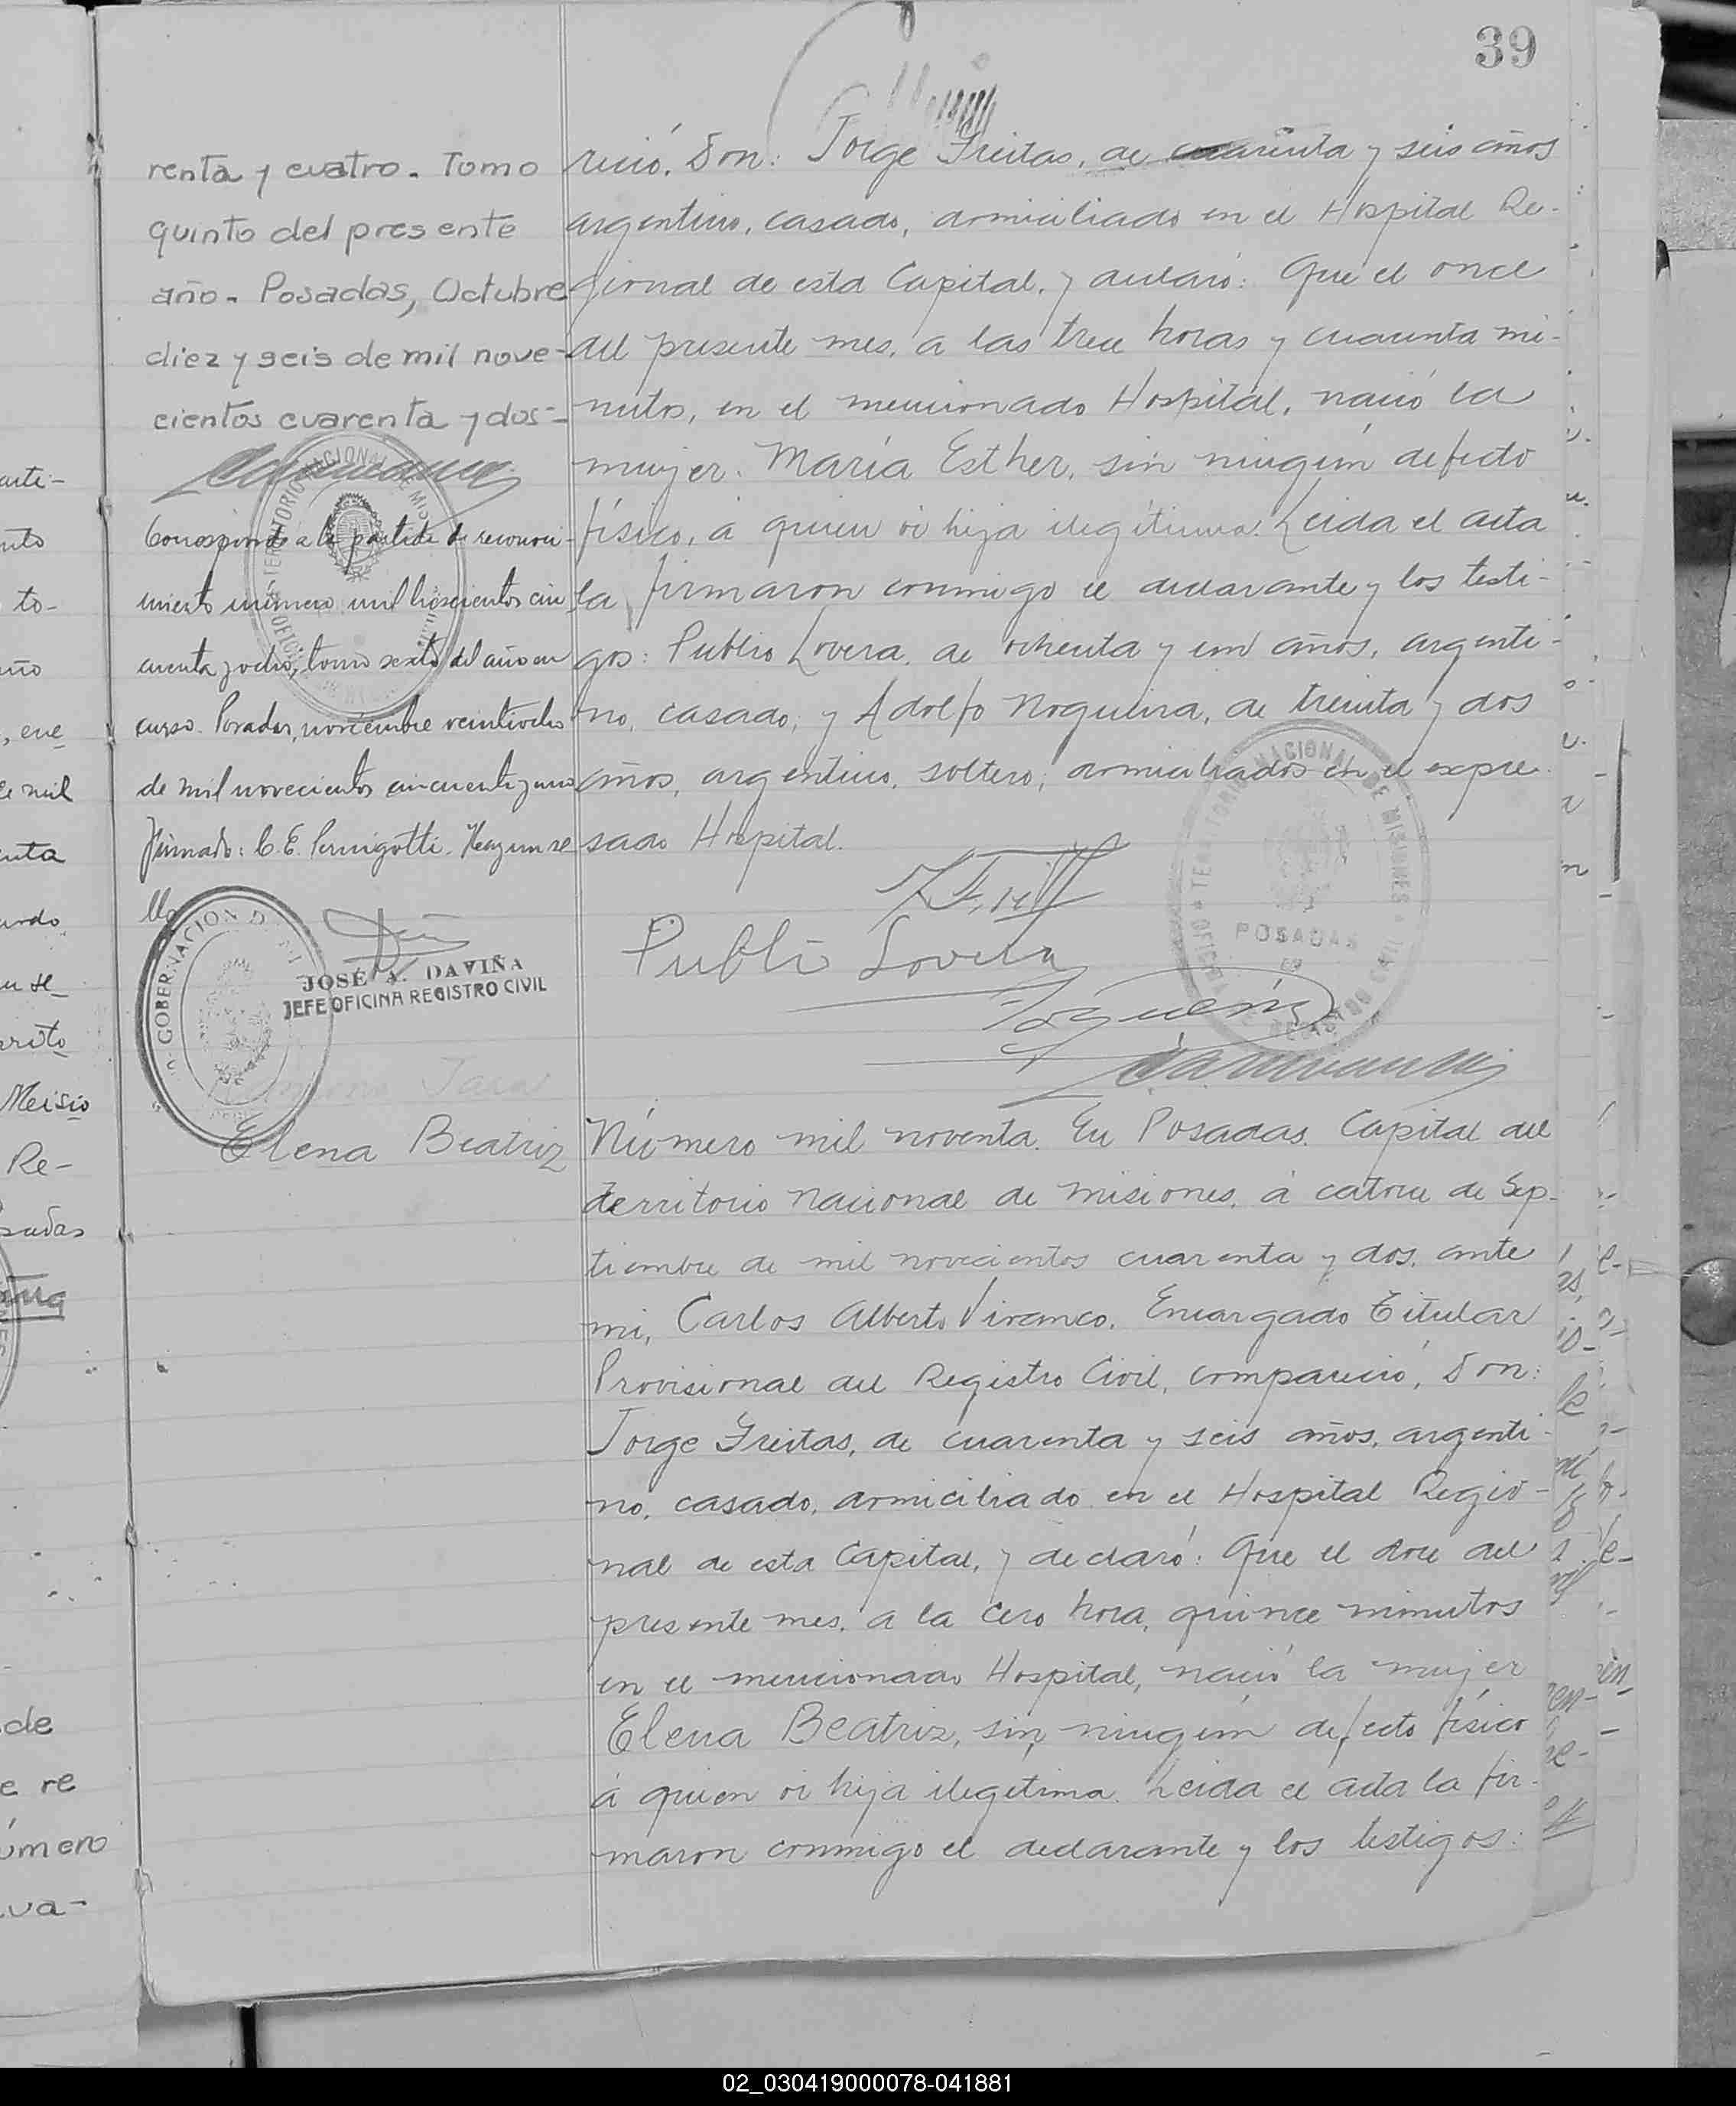 39
renta y cuatro. Tomo
quinto del presente
año. Posadas, Octubre
diez y seis de mil nove-
cientos cuarenta y dos-
Corresponde a la partida de reconoci-
miento número mil trescientos cin
cuenta y ocho, tomo sexto del año en
curso. Posadas, noviembre veintiocho
de mil novecientos cincuenta y uno
Firmado: C. E. Pernigotti. Hay un se
llo
GOBERNACION DE MI
JOSÉ A. DAVIÑA
JEFE OFICINA REGISTRO CIVIL
reció, Don: Jorge Freitas, de cuarenta y seis años
argentino, casado, domiciliado en el Hospital Re-
gional de esta Capital, y declaró: Que el once
del presente mes, a las trece horas y cuarenta mi-
nutos, en el mencionado Hospital, nació la
mujer. María Esther, sin ningún defecto
físico, á quien oi hija ilegítima. Leida el acta
la firmaron conmigo el declarante y los testi-
gos: Publio Lovera, de ochenta y un años, argenti-
no, casado; y Adolfo Nogueira, de treinta y dos
años, argentino, soltero; domiciliados en el expre
sado Hospital.
Publio Lovera
POSADAS
Elena Beatriz
Número mil noventa. En Posadas. Capital del
territorio Nacional de Misiones, á catorce de Sep-
tiembre de mil novecientos cuarenta y dos, ante
mi, Carlos Alberto Vivanco. Encargado Titular
Provisional del Registro Civil, compareció, Don:
Jorge Freitas, de cuarenta y seis años, argenti-
no, casado, domiciliado en el Hospital Regio-
nal de esta Capital, y declaró: Que el doce del
presente mes, a la cero hora, quince minutos
en el mencionado Hospital, nació la mujer
Elena Beatriz, sin ningún defecto físico
á quien oi hija ilegítima. Leida el acta la fir-
maron conmigo el declarante y los testigos:
02_030419000078-041881